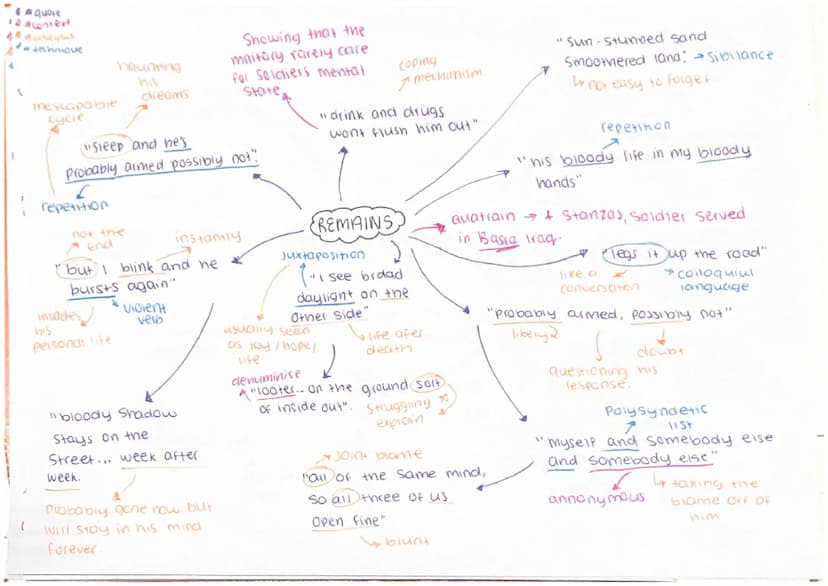 = quote
= context
= analysis
= technique
Showing that the
military rarely care
for soldiers mental
state
coping
mechanism
"drink and drugs
wont flush him out"
"Sun-stunned sand
Smothered land: → sibilance
no easy to forget
haunting
his
dreams
inescapable
cycle
"Sleep and he's
probably armed possibly not".
repetition
repetition
"his bloody life in my bloody
hands"
REMAINS
quatrain → 7 stanzas, soldier served
in Basra Iraq.
not the
end
instantly
"but I blink and he
bursts again"
violent
verb
invades
his
personal life
juxtaposition
"I see broad
daylight on the
other side"
usually seen
as joy/hope/
life
life after
death
"legs it up the road"
like a
conversation
colloquial
language
"probably armed, possibly not"
likely?
questioning his
response.
doubt
dehumanise
"looter... on the ground sort
of inside out".
struggling to
explain
"bloody shadow
stays on the
street... week after
week.
probably gone now but
will stay in his mind
forever
joint blame
"all of the same mind,
so all three of us
open fire"
blunt
Polysyndetic
list
"myself and somebody else
and somebody else"
annonymous
taking the
blame off of
him